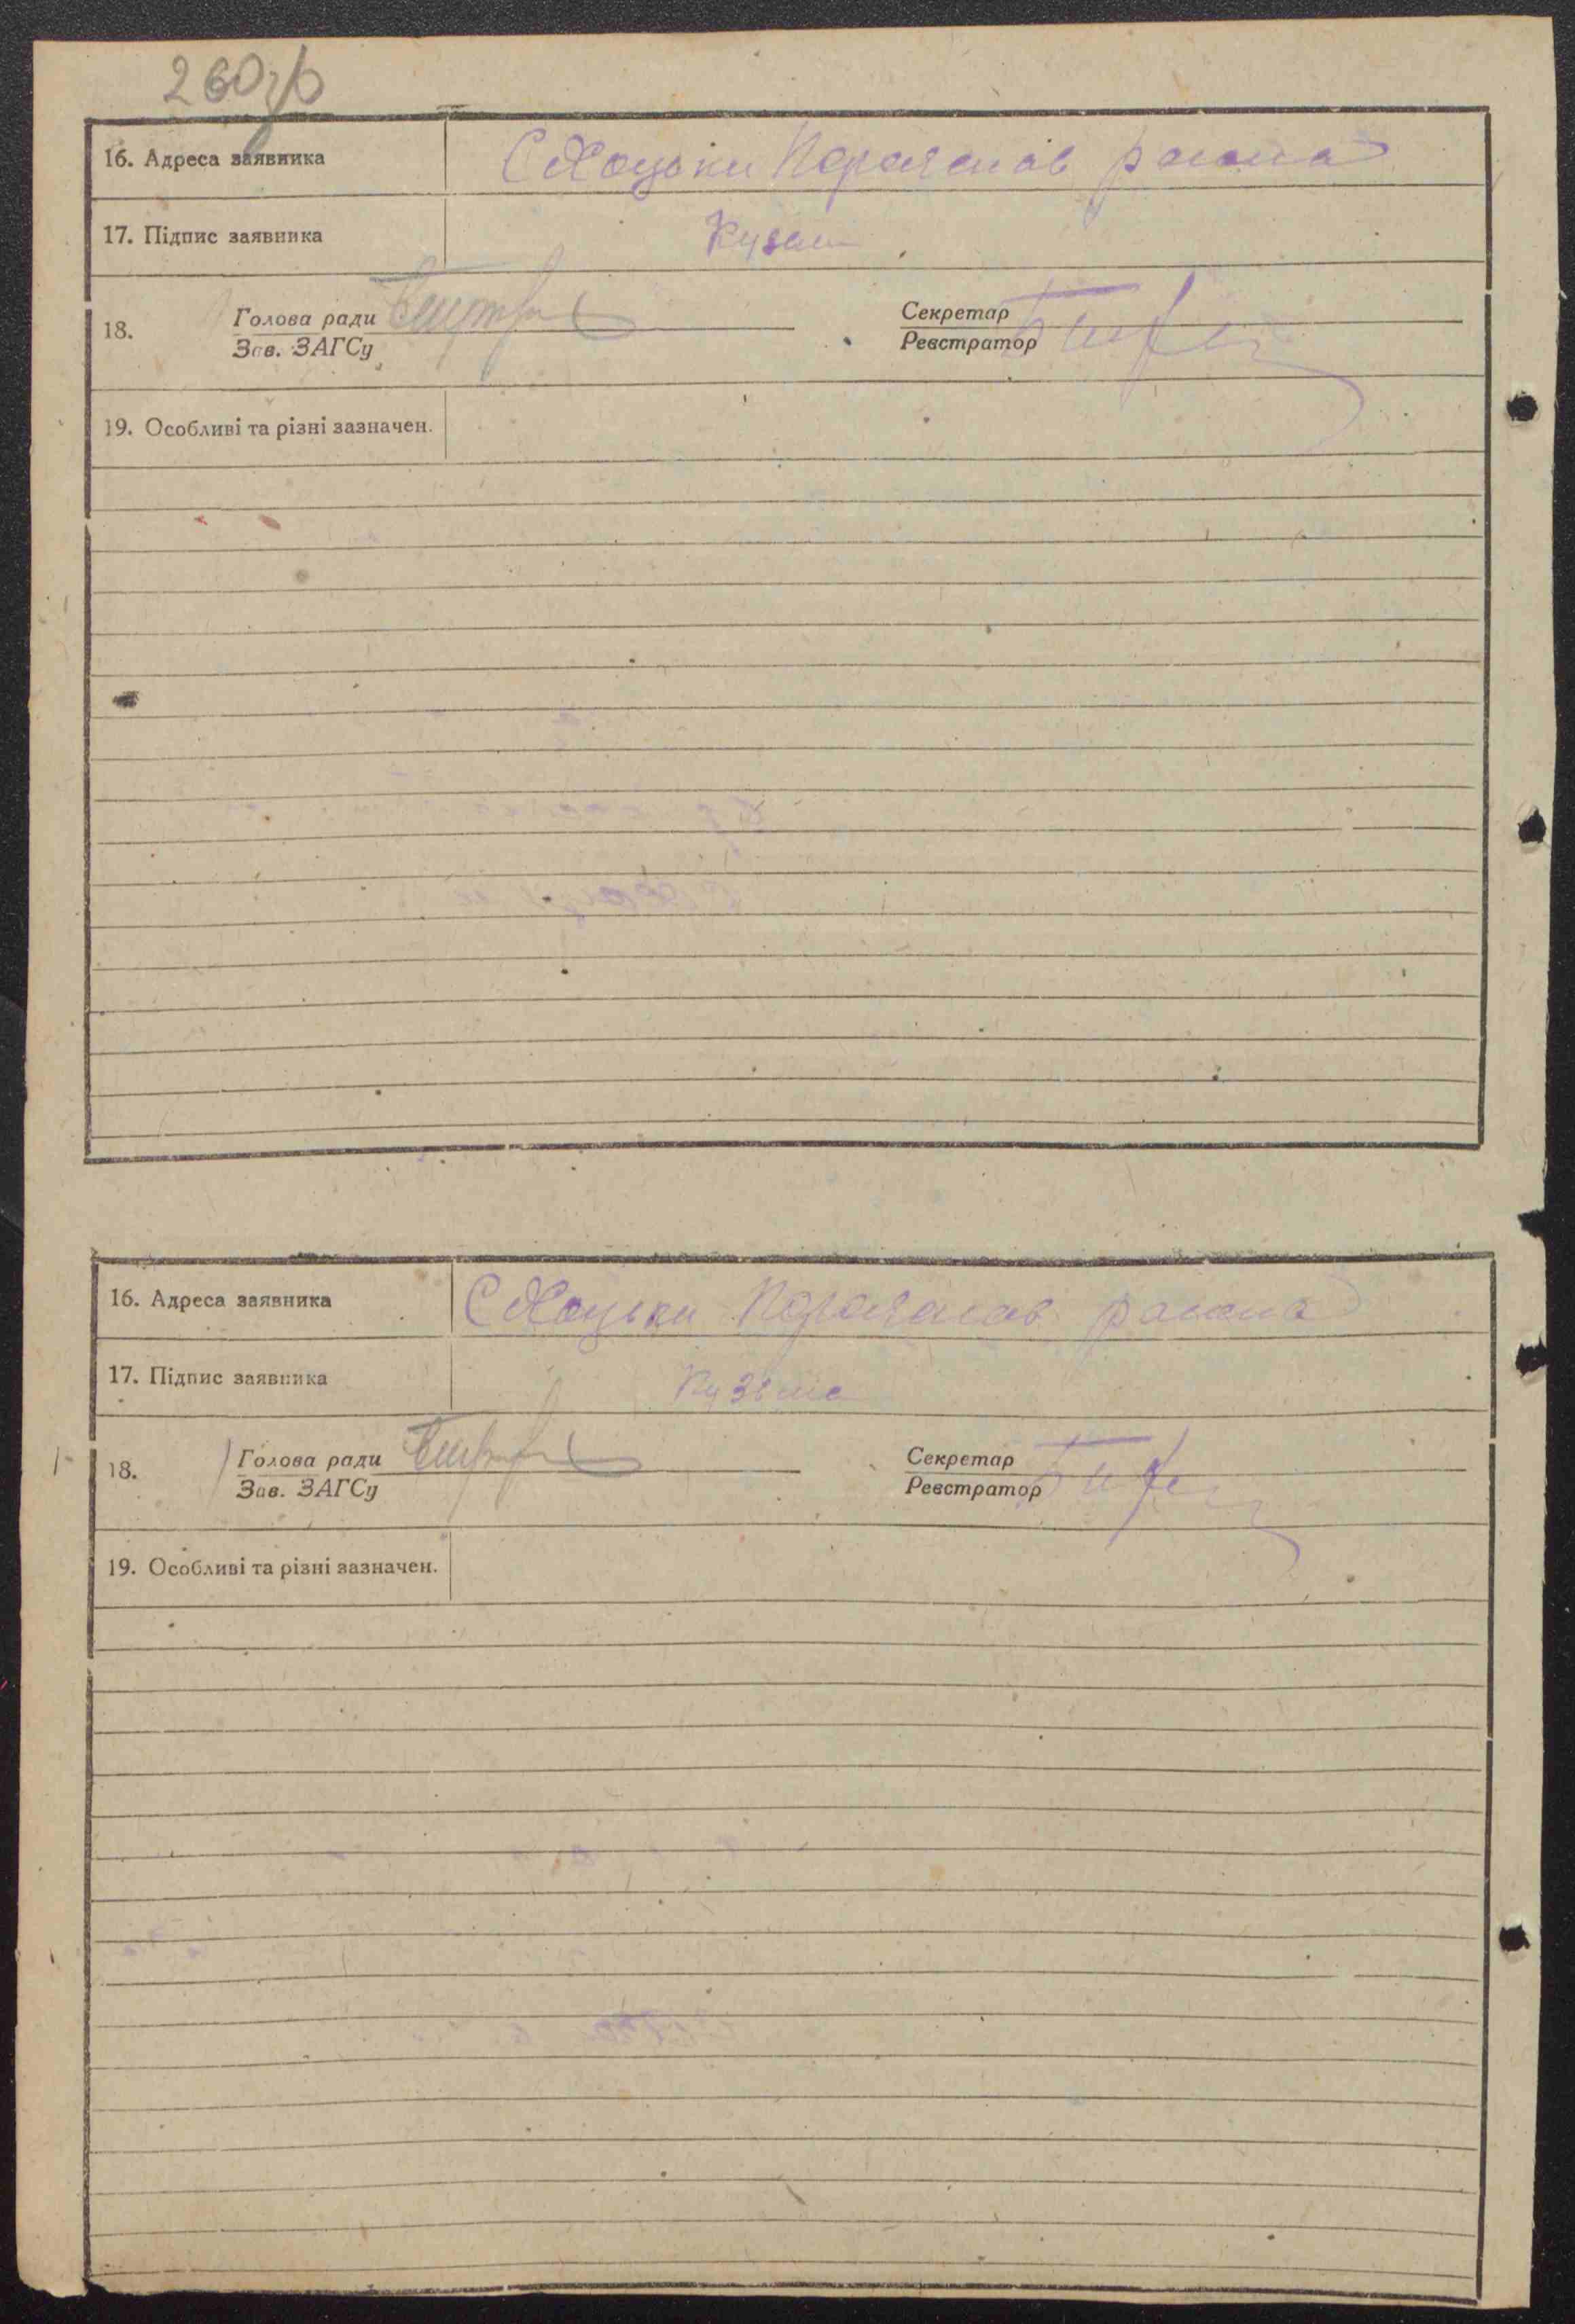 260зв
16. Адреса заявника С Хоцьки Переяслав района
17. Підпис заявника Кузьм
18. Голова ради Секретар
Зав. ЗАГСу Реєстратор
19. Особливі та різні зазначен.
16. Адреса заявника С Хоцьки Переяслав района
17. Підпис заявника Кузьма
18. Голова ради Секретар
Зав. ЗАГСу Реєстратор
19. Особливі та різні зазначен.